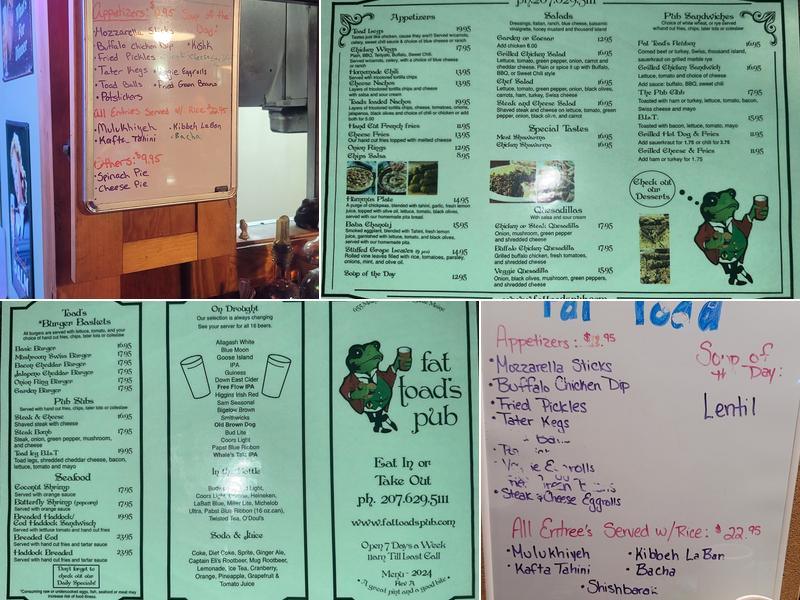 Appetizers: Soup of the
Mozzarella Sticks Day:
Buffalo Chicken Dip • Kishk
Fried Pickles
Tater Kegs Eggrolls
Toad Balls • Fried Green Beans
Potstickers
All Entrées Served w/ Rice $22.95
• Mulukhiyeh • Kibbeh Laban
• Kafta Tahini • Bacha
Others: $9.95
• Spinach Pie
• Cheese Pie
ph.207.629.5111
Appetizers
Toad Legs 19.95
Tastes just like chicken, cause they are!!! Served w/carrots,
celery, sweet chili sauce & choice of blue cheese or ranch
Chicken Wings 17.95
Plain, BBQ, Teriyaki, Buffalo, Sweet Chili.
Served w/carrots, celery, with a choice of blue cheese
or ranch
Homemade Chili 13.95
Served with tricolored tortilla chips
Cheese Nachos 13.95
Layers of tricolored tortilla chips and cheese
with salsa and sour cream
Toads loaded Nachos 19.95
Layers of tricolored tortilla chips, cheese, tomatoes, onions,
jalapenos, black olives and choice of chili or chicken or add
both for 5.00
Hand Cut French fries 11.95
Cheese Fries 13.95
Our hand cut fries topped with melted cheese
Onion Rings 12.95
Chips Salsa 8.95
Hummus Plate 14.95
A purée of chickpeas, blended with tahini, garlic, fresh lemon
juice, topped with olive oil, lettuce, tomato, black olives,
served with our homemade pita bread.
Baba Ghanouj 15.95
Smoked eggplant, blended with Tahini, fresh lemon
juice, garnished with lettuce, tomato, and black olives,
served with our homemade pita.
Stuffed Grape Leaves 14.95
Rolled vine leaves filled with rice, tomatoes, parsley,
onions, mint, and olive oil.
Soup of the Day 12.95
Salads
Dressings, Italian, ranch, blue cheese, balsamic
vinaigrette, honey mustard and thousand island
Garden or Caesar 12.95
Add chicken 6.00
Grilled Chicken Salad 16.95
Lettuce, tomato, green pepper, onion, carrot and
cheddar cheese. Plain or spice it up with Buffalo,
BBQ, or Sweet Chili style
Chef Salad 16.95
Lettuce, tomato, green pepper, onion, black olives,
carrots, ham, turkey, Swiss cheese
Steak and Cheese Salad 16.95
Shaved steak and cheese on lettuce, tomato, green
pepper, onion, black olive, and carrot
Special Tastes
Meat Shawarma 16.95
Chicken Shawarma 16.95
Quesadillas
With salsa and sour cream
Chicken or Steak Quesadilla 17.95
Onion, mushroom, green pepper
and shredded cheese
Buffalo Chicken Quesadilla 17.95
Grilled buffalo chicken, fresh tomatoes,
and shredded cheese
Veggie Quesadilla 15.95
Onion, black olives, mushroom, green peppers,
and shredded cheese
www.fattoadspub.com
Pub Sandwiches
Choice of white wheat, or rye served
w/hand cut fries, chips, tater tots or coleslaw
Fat Toad's Reuben 16.95
Corned beef or turkey, Swiss, thousand island,
sauerkraut on grilled marble rye
Grilled Chicken Sandwich 16.95
Lettuce, tomato and choice of cheese
Add sauce: buffalo, BBQ, sweet chili
The Pub Club 17.95
Toasted with ham or turkey, lettuce, tomato, bacon,
Swiss cheese and mayo
B.L.T. 15.95
Toasted with bacon, lettuce, tomato, mayo
Grilled Hot Dog & Fries 11.95
Add sauerkraut for 1.75 or chili for 3.75
Grilled Cheese & Fries 11.95
Add ham or turkey for 1.75
Check out
our
Desserts
Toad's
*Burger Baskets
All burgers are served with lettuce, tomato, and your
choice of hand cut fries, chips, tater tots or coleslaw
Basic Burger 16.95
Mushroom Swiss Burger 17.95
Bacon Cheddar Burger 17.95
Jalapeno Cheddar Burger 17.95
Onion Ring Burger 17.95
Garden Burger 17.95
Pub Subs
Served with hand cut fries, chips, tater tots or coleslaw
Steak & Cheese 16.95
Shaved steak with cheese
Steak Bomb 17.95
Steak, onion, green pepper, mushroom,
and cheese
Toad leg B.L.T 19.95
Toad legs, shredded cheddar cheese, bacon,
lettuce, tomato and mayo
Seafood
Coconut Shrimp 17.95
Served with orange sauce
Butterfly Shrimp (popcorn) 17.95
Served with orange sauce
Breaded Haddock/ 19.95
Cod Haddock Sandwich
Served with lettuce tomato and hand cut fries
Breaded Cod 23.95
Served with hand cut fries and tartar sauce
Haddock Breaded 23.95
Served with hand cut fries and tartar sauce
Don't forget to
check out our
Daily Specials!
*Consuming raw or undercooked eggs, fish, seafood or meat may
increase risk of food illness.
On Draught
Our selection is always changing
See your server for all 16 beers.
Allagash White
Blue Moon
Goose Island
IPA
Guiness
Down East Cider
Free Flow IPA
Higgins Irish Red
Sam Seasonal
Bigelow Brown
Smithwicks
Old Brown Dog
Bud Lite
Coors Light
Pabst Blue Ribbon
Whale's Tale IPA
In the Bottle
Light,
Coors Light, Heineken,
LaBatt Blue, Miller Lite, Michelob
Ultra, Pabst Blue Ribbon (16 oz.can),
Twisted Tea, O'Doul's
Soda & Juice
Coke, Diet Coke, Sprite, Ginger Ale,
Captain Eli's Rootbeer, Mug Rootbeer,
Lemonade, Ice Tea, Cranberry,
Orange, Pineapple, Grapefruit &
Tomato Juice
fat
toad's
pub
Eat In or
Take Out
ph. 207.629.5111
www.fattoadspub.com
Open 7 Days a Week
11am Till Last Call
Menu - 2024
Rev A
• A great pint and a good bite •
Fat Toad
Appetizers: Soup of
the Day:
• Mozzarella Sticks
• Buffalo Chicken Dip Lentil
• Fried Pickles
• Tater Kegs
• Steak & Cheese Eggrolls
All Entree's Served w/Rice: $22.95
• Mulukhiyeh • Kibbeh Laban
• Kafta Tahini • Bacha
• Shishbarak